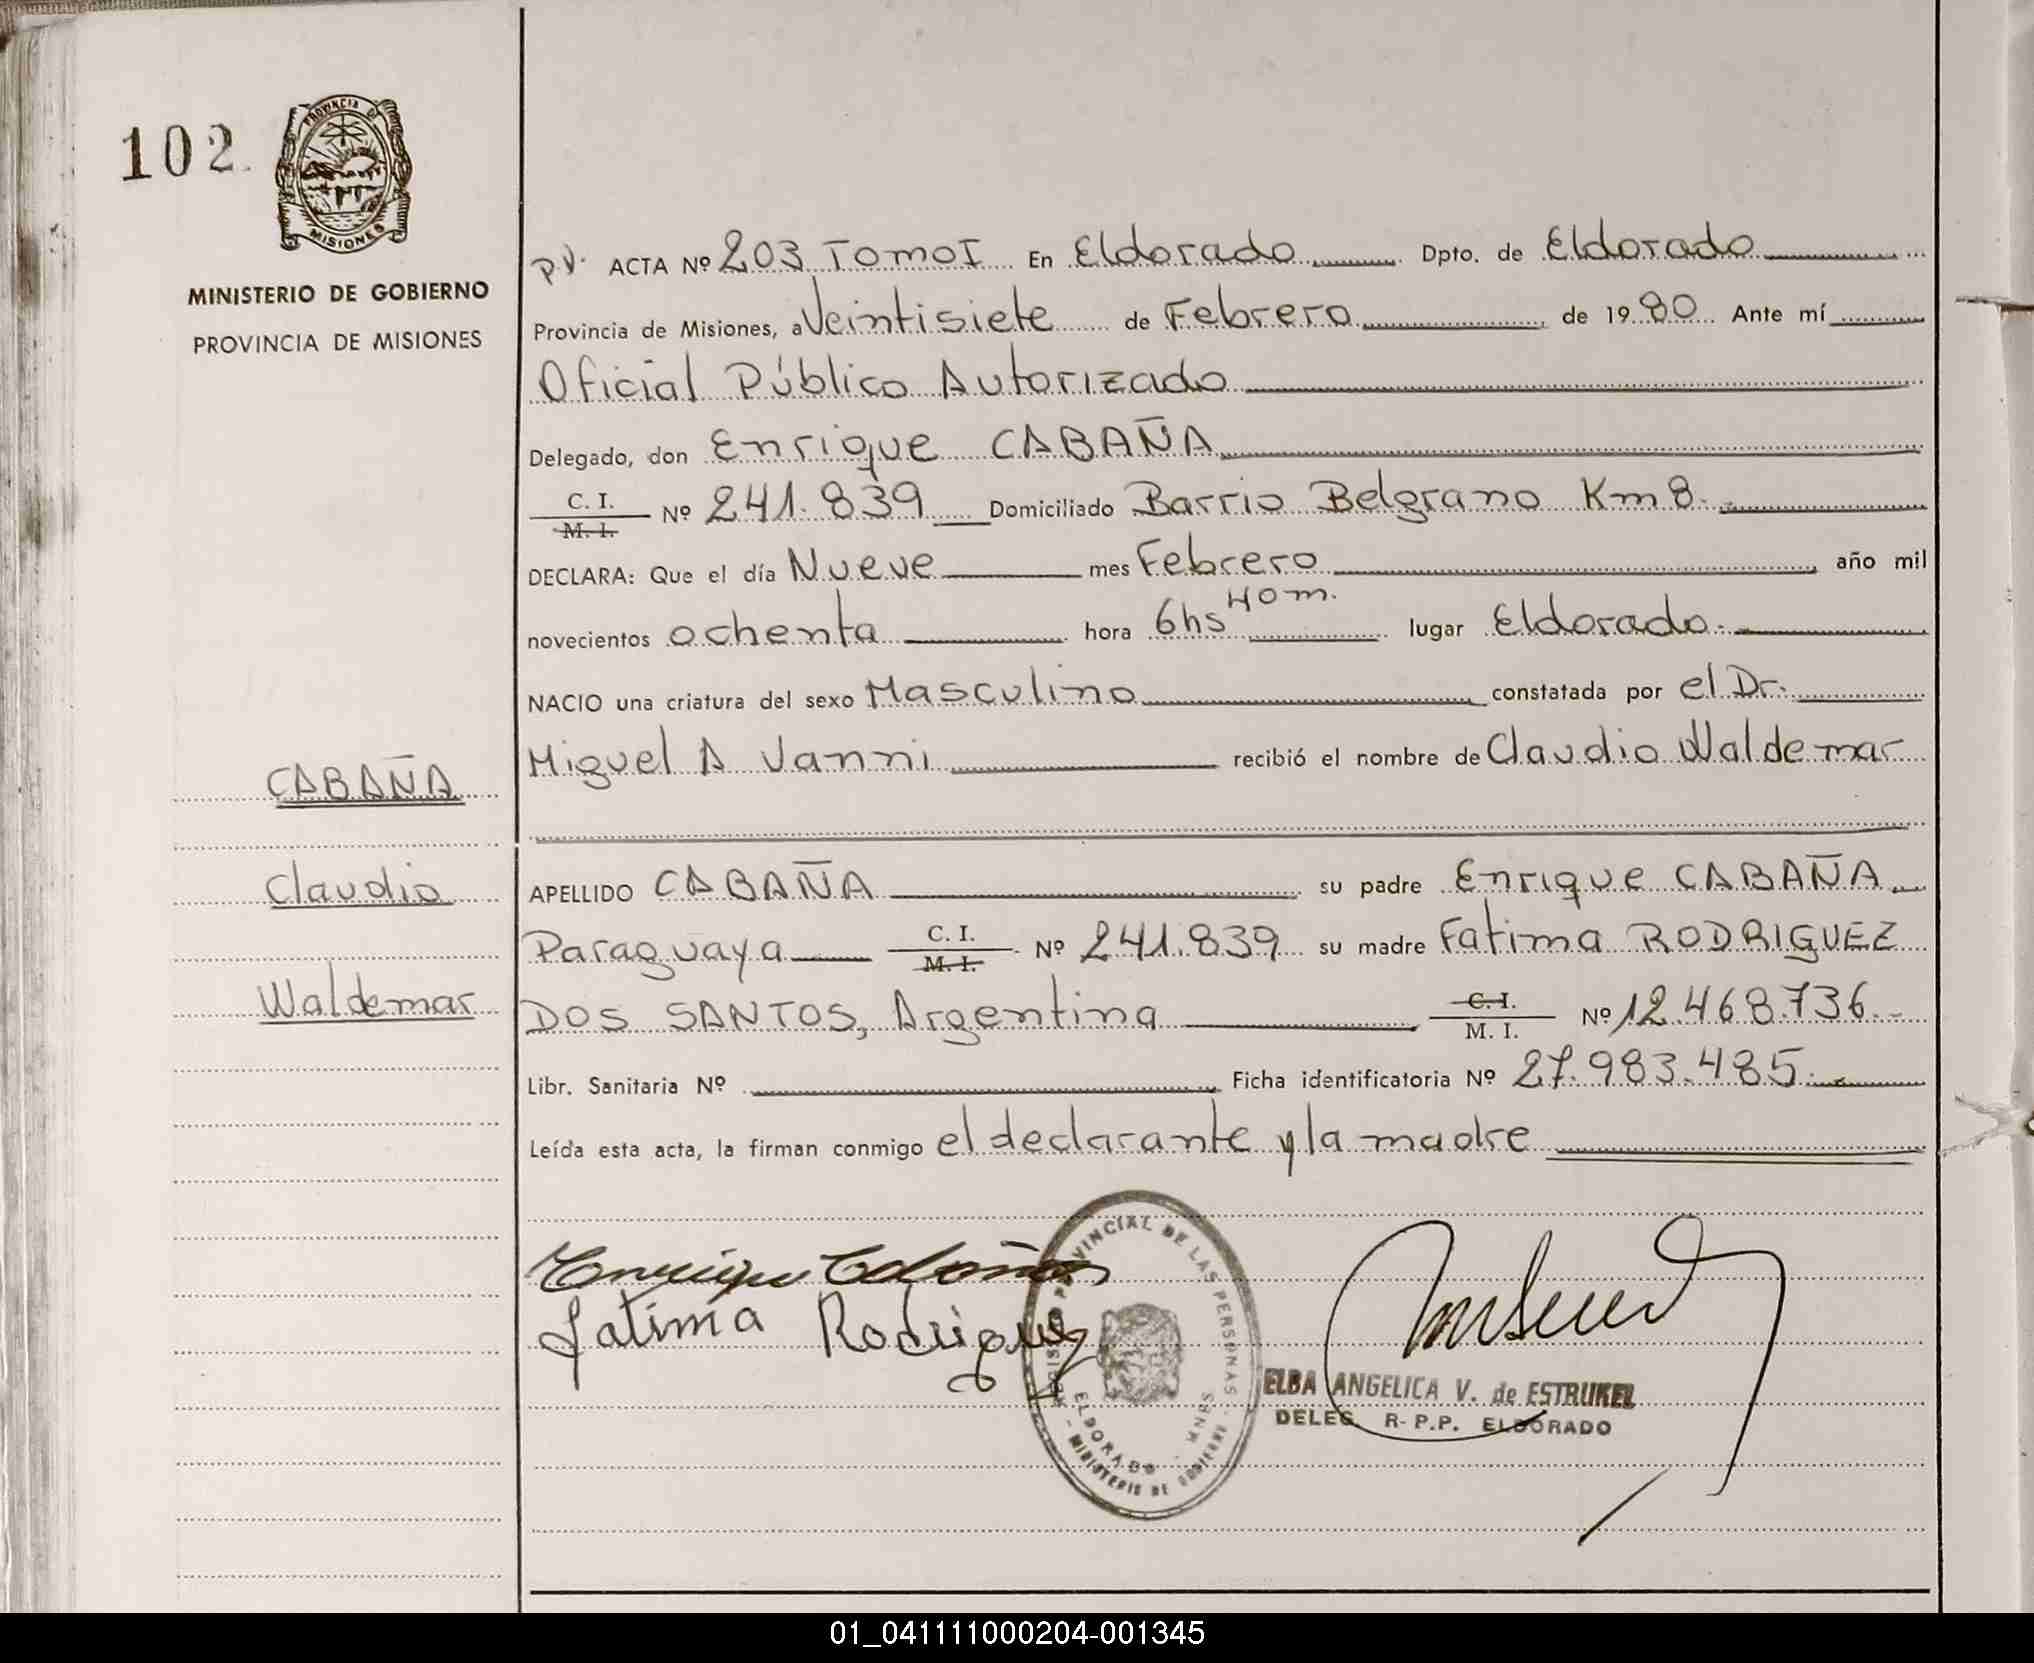 102.
PROVINCIA DE
MISIONES
MINISTERIO DE GOBIERNO
PROVINCIA DE MISIONES
CABAÑA
Claudio
Waldemar
ACTA Nº 203 TOMO I En Eldorado Dpto. de Eldorado
Provincia de Misiones, a Veintisiete de Febrero de 1980 Ante mí
Oficial Público Autorizado
Delegado, don Enrique CABAÑA
C. I.
M. I.
Nº 241.839 Domiciliado Barrio Belgrano Km 8.
DECLARA: Que el día Nueve mes Febrero año mil
novecientos ochenta hora 6hs 40m. lugar Eldorado.
NACIO una criatura del sexo Masculino constatada por el Dr.
Miguel A Vanni recibió el nombre de Claudio Waldemar
APELLIDO CABAÑA su padre Enrique CABAÑA
Paraguaya C. I. Nº 241.839 su madre Fatima RODRIGUEZ
M. I.
DOS SANTOS, Argentina C. I. Nº 12.468.736.-
M. I.
Libr. Sanitaria Nº Ficha identificatoria Nº 27.983.485.
Leída esta acta, la firman conmigo el declarante y la madre
Enrique Cabaña
Fatima Rodriguez
REGISTRO PROVINCIAL DE LAS PERSONAS
ELDORADO - MNES
MINISTERIO DE GOBIERNO
ELBA ANGELICA V. de ESTRUKEL
DELEG. R-P.P. ELDORADO
01_041111000204-001345